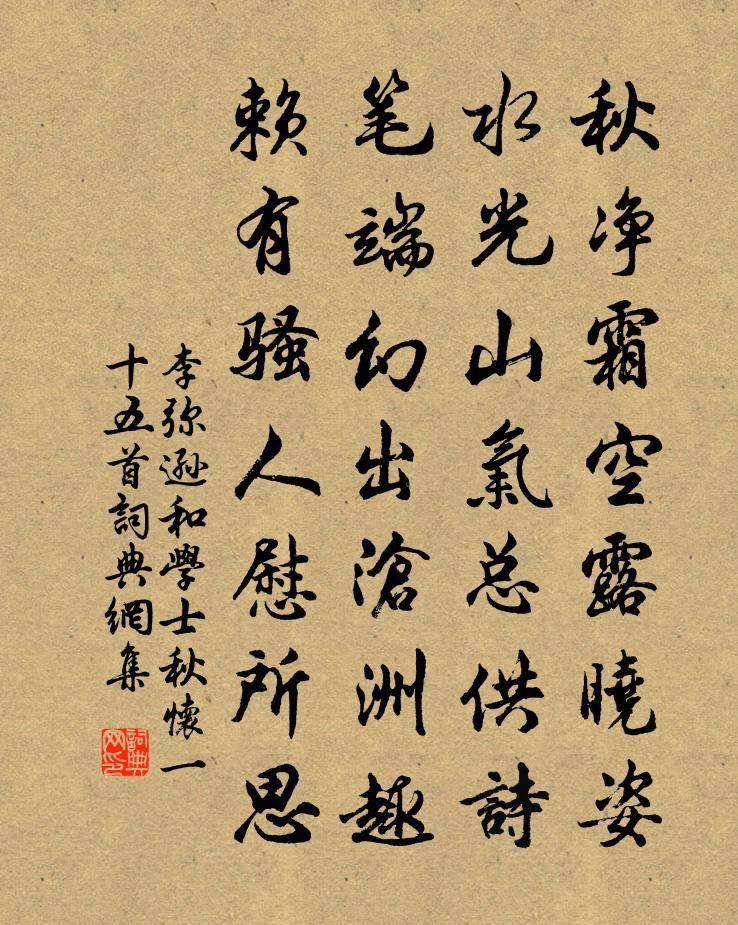 秋净霜空露曉姿
水光山氣总供詩
笔端幻出滄洲趣
赖有骚人慰所思
李弥遜和學士秋懷一
十五首詞典網集
詞典网印